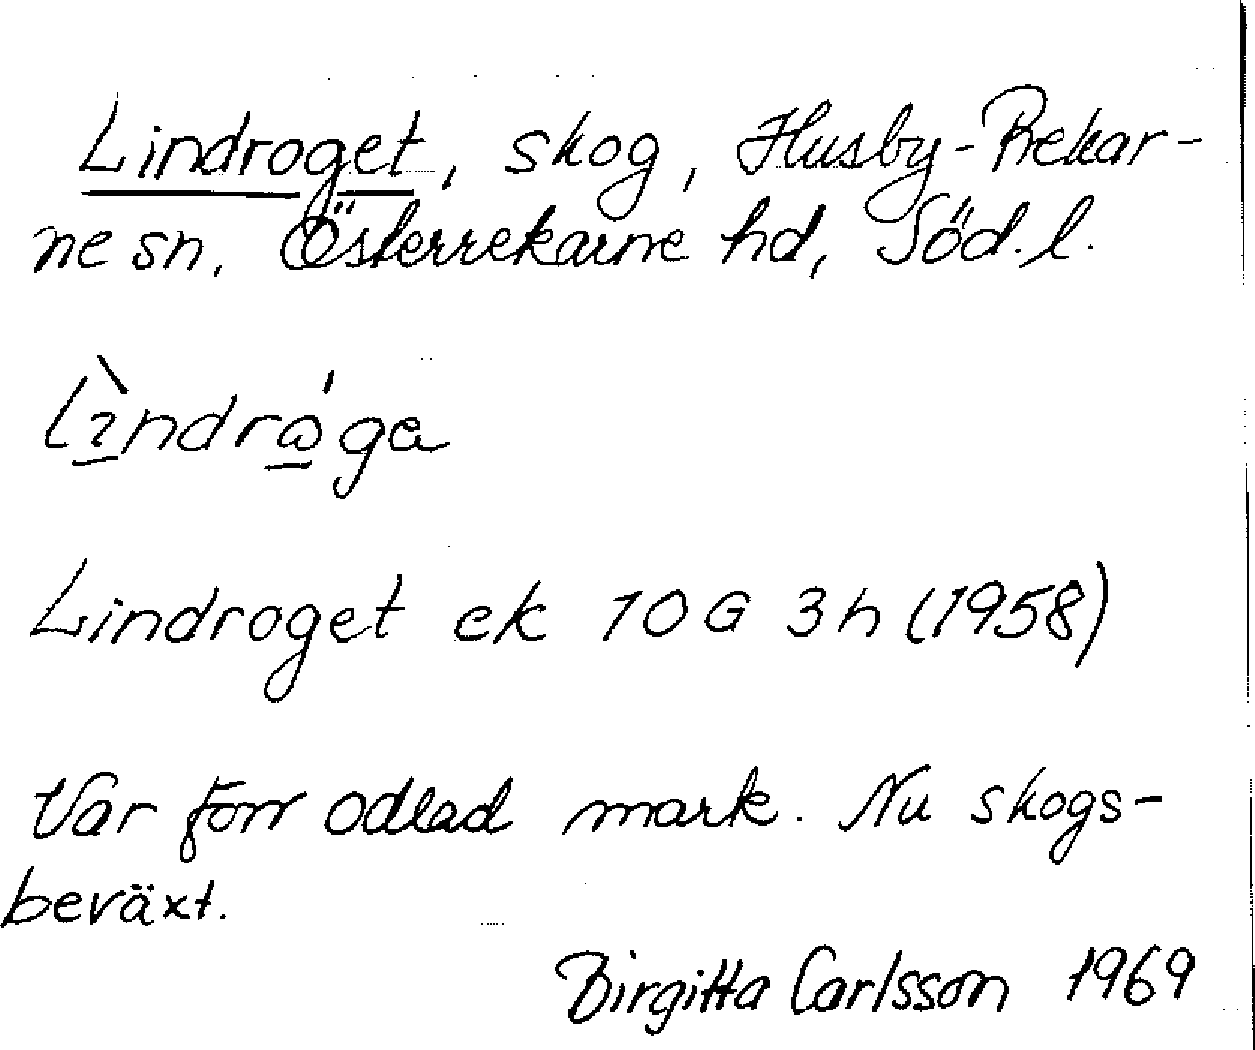 Lindroget, skog, Husby-Rekar-
ne sn, Österrekarne hd, Söd. l.
Lìndrå'ga
Lindroget ek 10 G 3 h (1958)
Var förr odlad mark. Nu skogs-
beväxt.
Birgitta Carlsson 1969